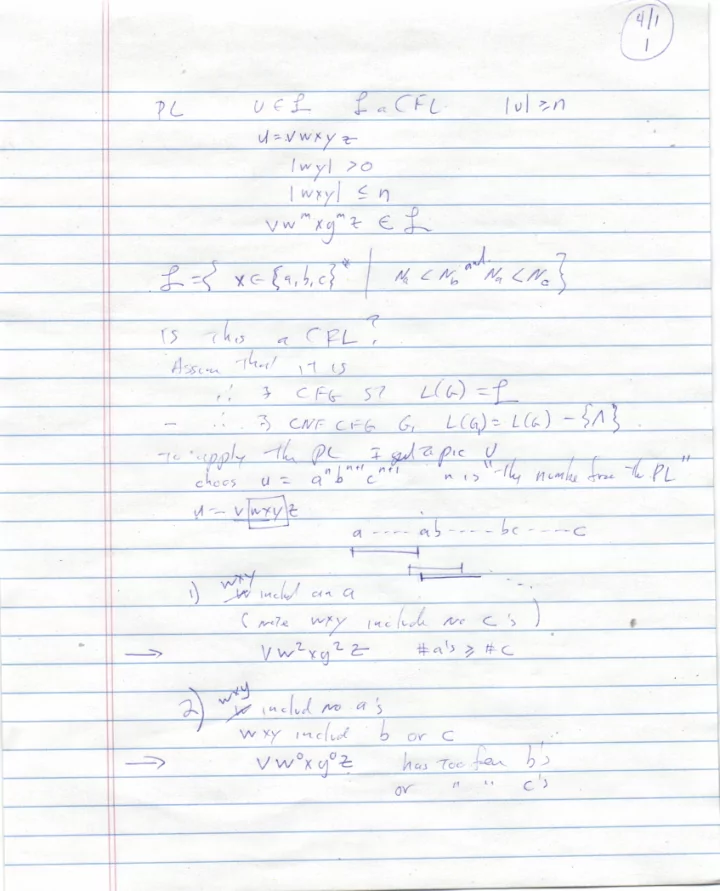 4/1
1
PL U ∈ L L a CFL |u| ≥ n
u = v w x y z
|wy| > 0
|wxy| ≤ n
v w^m x y^m z ∈ L
L = { x ∈ {a,b,c}* | Na < Nb and Na < Nc }
Is this a CFL?
Assum that it is
∴ ∃ CFG ST L(G) = L
– ∴ ∃ CNF CFG G, L(G₁) = L(G) – {Λ}
To apply the PL I get to pic U
choos u = a^n b^n+1 c^n+1 n is "the number from the PL"
u = v wxy z
a ---- ab ---- bc ---- c
1) wxy includ an a
(note wxy include no c's)
→ v w² x y² z #a's ≥ #c
2) wxy includ no a's
wxy includ b or c
→ v w⁰ x y⁰ z has too few b's
or " " c's